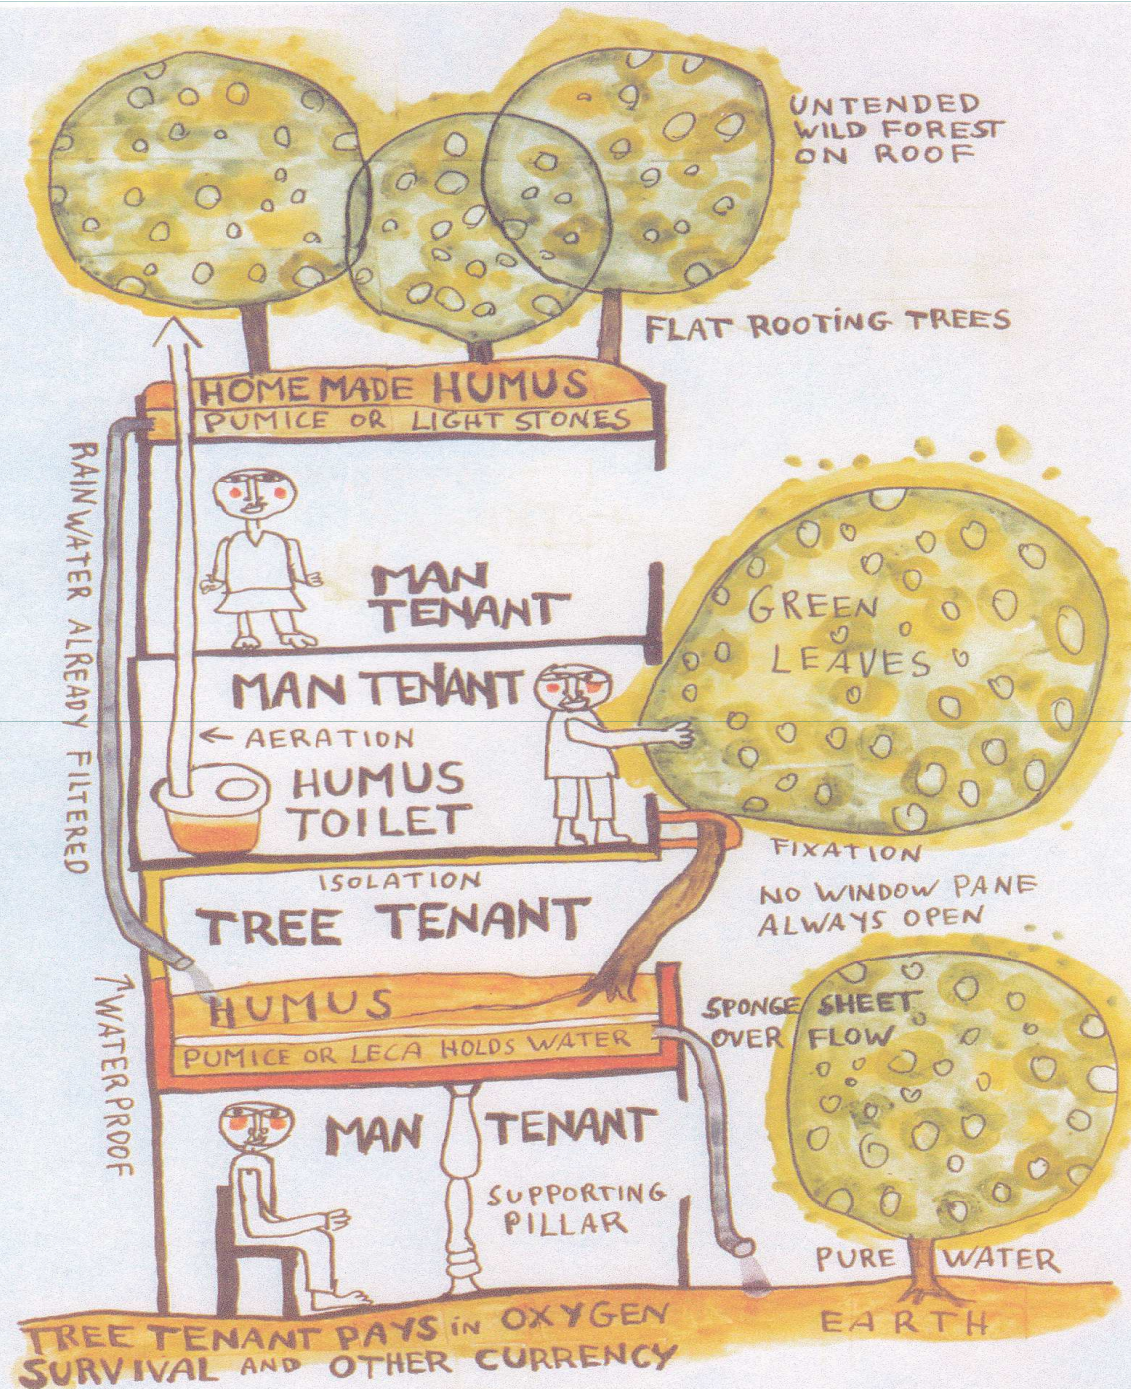 UNTENDED
WILD FOREST
ON ROOF
FLAT ROOTING TREES
HOMEMADE HUMUS
PUMICE OR LIGHT STONES
RAINWATER ALREADY FILTERED
MAN
TENANT
GREEN
LEAVES
MAN TENANT
← AERATION
HUMUS
TOILET
FIXATION
NO WINDOW PANE
ALWAYS OPEN
ISOLATION
TREE TENANT
HUMUS
PUMICE OR LECA HOLDS WATER
SPONGE SHEET
OVER FLOW
↑WATERPROOF
MAN TENANT
SUPPORTING
PILLAR
PURE WATER
EARTH
TREE TENANT PAYS iN OXYGEN
SURVIVAL AND OTHER CURRENCY